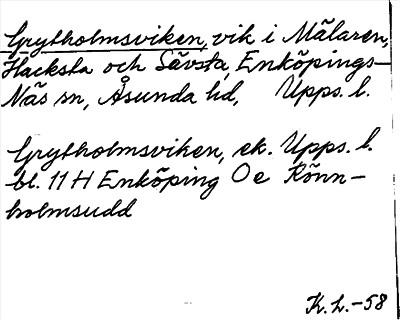 Grytholmsviken, vik i Mälaren,
Hacksta och Sävsta, Enköpings-
Näs sn, Åsunda hd, Upps. l.
Grytholmsviken, ek. Upps. l.
bl. 11 H Enköping O e Rönn-
holmsudd
K. L. -58